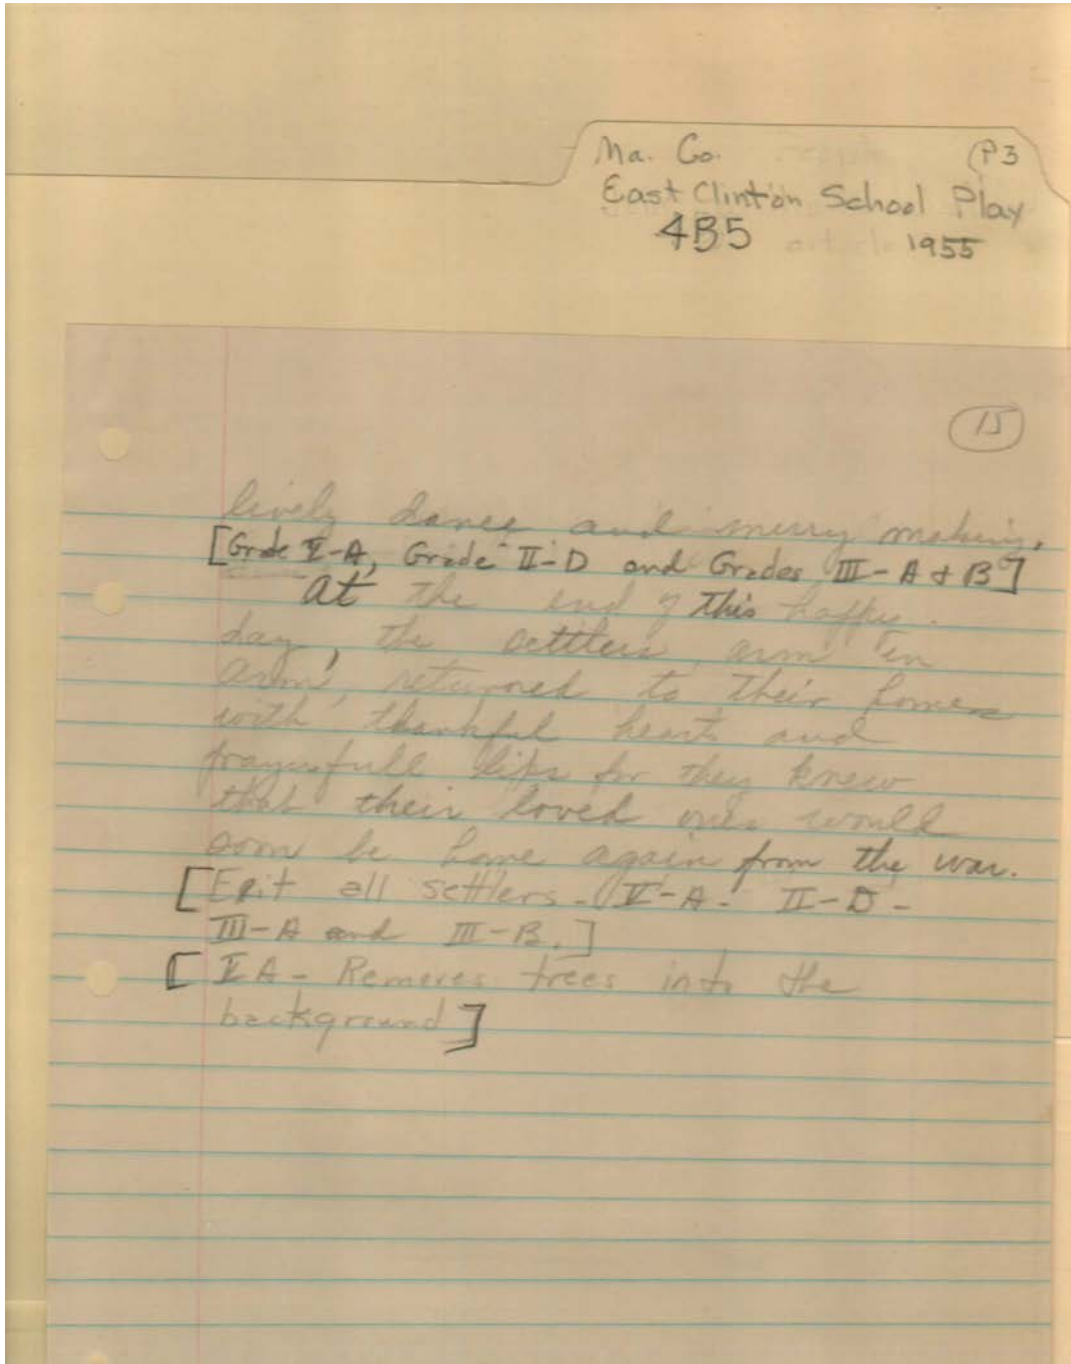 Ma. Co. P3
East Clinton School Play
4B5 1955
15
lively dance and merry making.
[Grade V-A, Grade II-D and Grades III-A & B]
at the end of this happy
day, the settlers, arm in
arm, returned to their homes
with thankful hearts and
prayerfull lips for they knew
that their loved ones would
soon be home again from the war.
[Exit all settlers - V-A - II-D -
III-A and III-B.]
[V A - Removes trees into the
background]